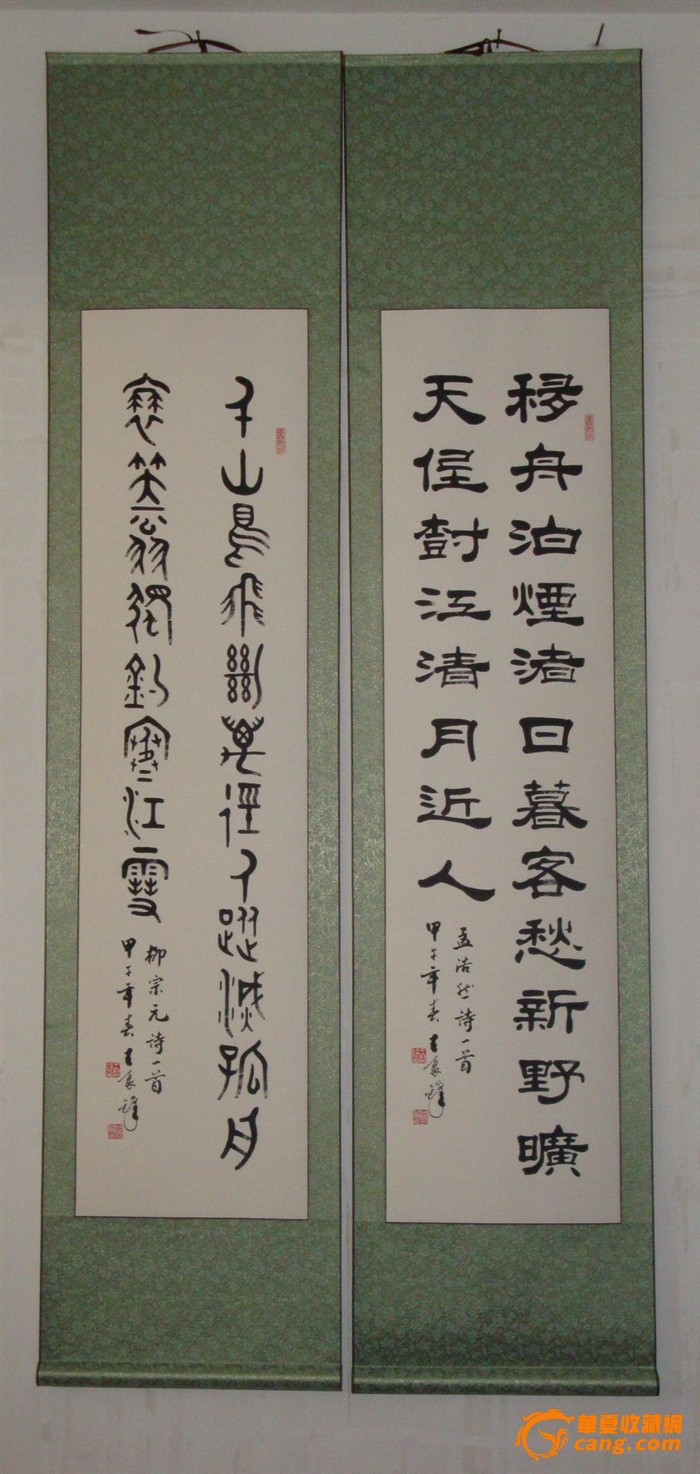 移舟泊煙渚日暮客愁新野曠
天低對江清月近人
孟浩然詩一首
甲子年春
千山鳥飛絕萬徑人蹤滅孤舟
蓑笠翁獨釣寒江雪
柳宗元詩一首
甲子年春
華夏收藏網
cang.com